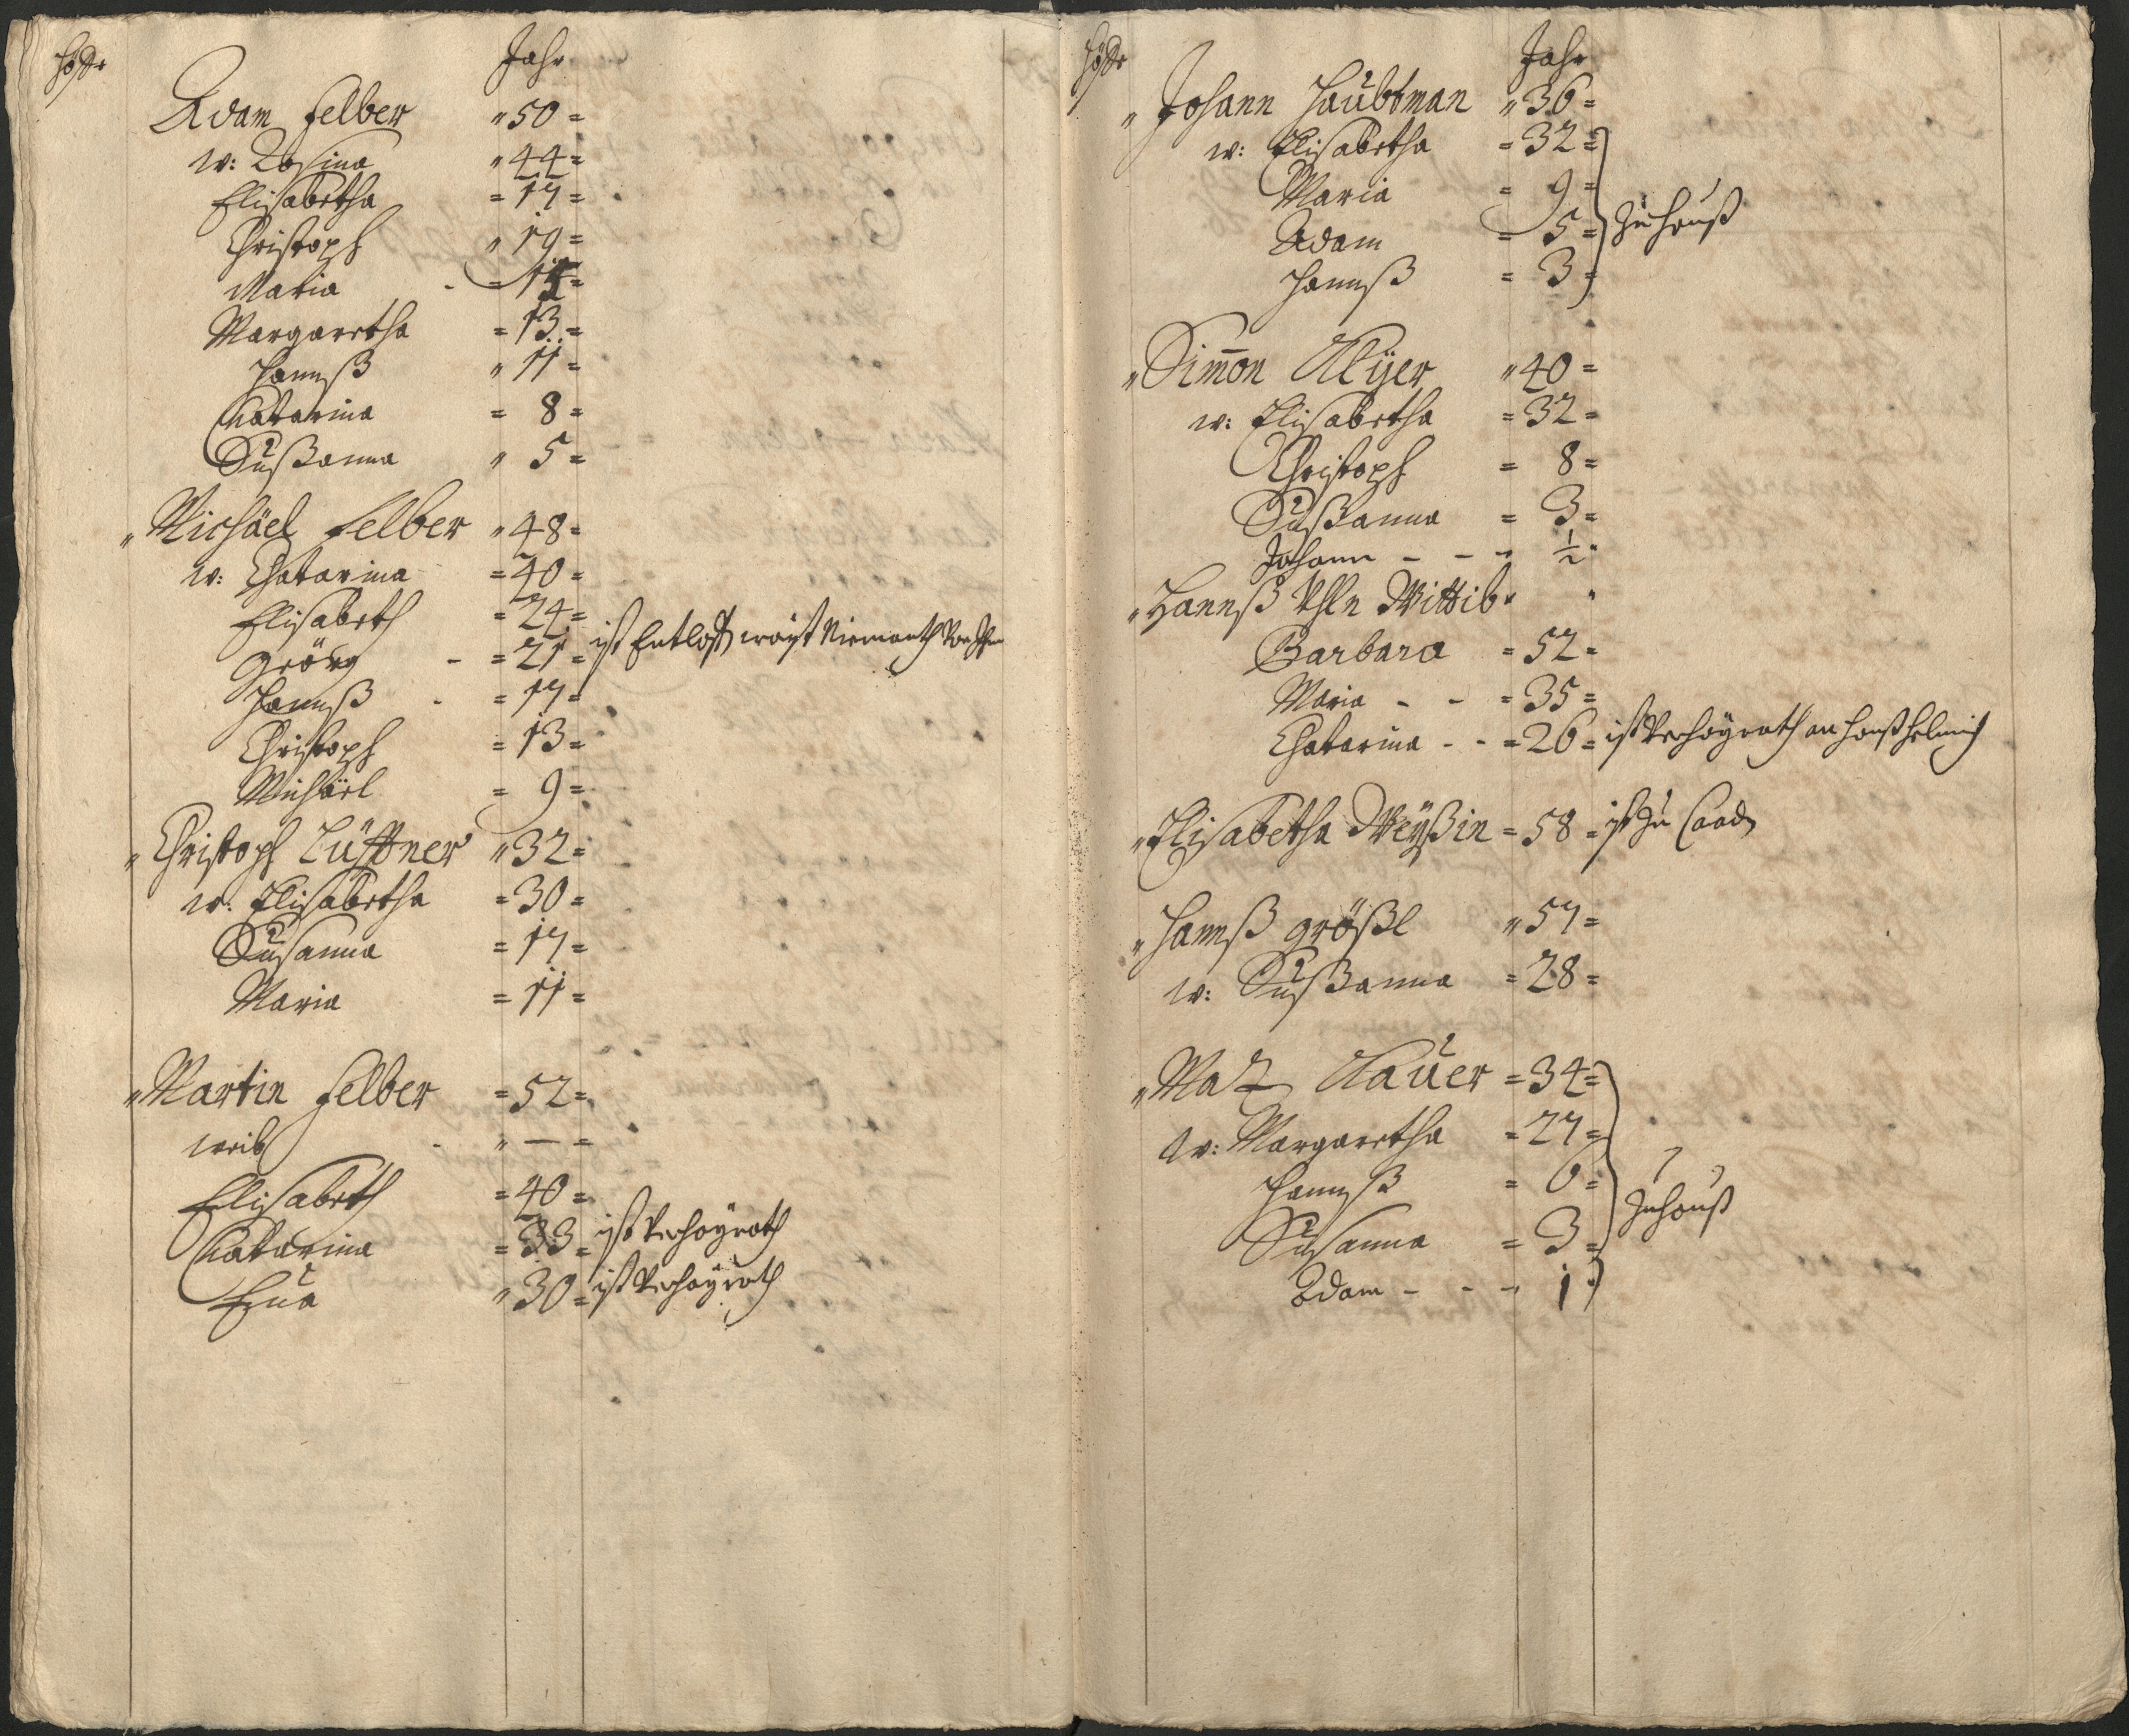 Jahr
Adam Felber " 50 =
w: Rosina " 44 =
Elisabetha = 17 =
Christoph " 19 =
Maria - = 15 =
Margaretha = 13 =
Hannß " 11 =
Catarina = 8 =
Sußanna " 5 =
" Michäel Felber " 48 =
w: Chatarina = 40 =
Elisabeth = 24 =
Geörg - = 21 = ist Entloffen weist Niemandt
Hannß - = 17 =
Christoph = 13 =
Michäel = 9 =
" Christoph Lüfftner " 32 =
w: Elisabetha = 30 =
Susanna = 17 =
Maria = 11 =
" Martin Felber = 52 =
weib - " — =
Elisabeth = 40 =
Catarina = 33 = ist Verheÿrath
Eua " 30 = ist Verheÿrath
Jahr
" Johann Haubtman " 36 =
w: Elisabetha = 32 =
Maria = 9 =
Adam = 5 = Zu hauß
Hannß = 3 =
" Sim̄on " 40 =
w: Elisabetha = 32 =
Christoph = 8 =
Sußanna = 3 =
Johann - - - ½ "
" Hannß Wittib "
Barbara = 52 =
Maria - - = 35 =
Chatarina - - = 26 = ist Verheÿrath an Hanß
" Elisabetha Weÿßin = 58 = ist zu Caad
" Hannß größl " 57 =
w: Sußanna = 28 =
" Matz = 34 =
w: Margaretha = 27 =
Hannß = 6 =
Zu hauß
Susanna = 3 =
Adam - - - 1